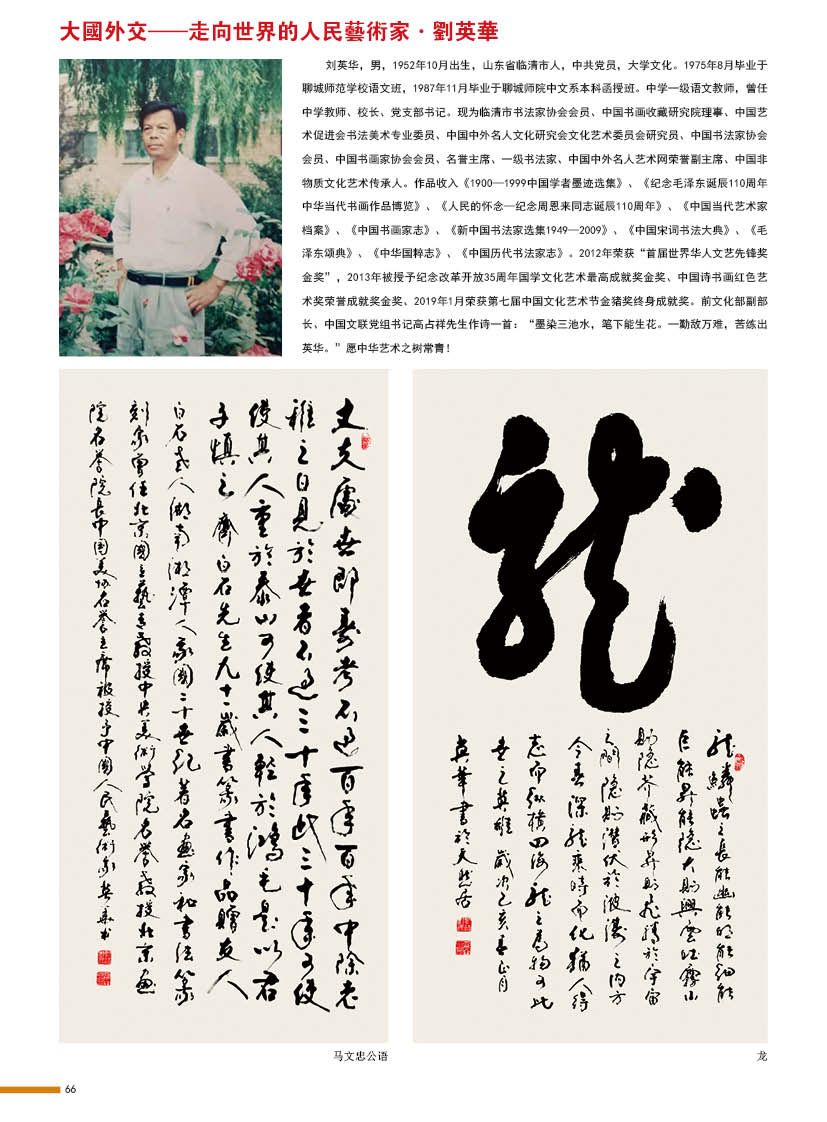 大國外交——走向世界的人民藝術家·劉英華
刘英华，男，1952年10月出生，山东省临清市人，中共党员，大学文化。1975年8月毕业于
聊城师范学校语文班，1987年11月毕业于聊城师院中文系本科函授班。中学一级语文教师，曾任
中学教师、校长、党支部书记。现为临清市书法家协会会员、中国书画收藏研究院理事、中国艺
术促进会书法美术专业委员、中国中外名人文化研究会文化艺术委员会研究员、中国书法家协会
会员、中国书画家协会会员、名誉主席、一级书法家、中国中外名人艺术网荣誉副主席、中国非
物质文化艺术传承人。作品收入《1900—1999中国学者墨迹选集》、《纪念毛泽东诞辰110周年
中华当代书画作品博览》、《人民的怀念—纪念周恩来同志诞辰110周年》、《中国当代艺术家
档案》、《中国书画家志》、《新中国书法家选集1949—2009》、《中国宋词书法大典》、《毛
泽东颂典》、《中华国粹志》、《中国历代书法家志》。2012年荣获“首届世界华人文艺先锋奖
金奖”，2013年被授予纪念改革开放35周年国学文化艺术最高成就奖金奖、中国诗书画红色艺
术奖荣誉成就奖金奖、2019年1月荣获第七届中国文化艺术节金猪奖终身成就奖。前文化部副部
长、中国文联党组书记高占祥先生作诗一首：“墨染三池水，笔下能生花。一勤敌万难，苦练出
英华。”愿中华艺术之树常青！
丈夫處世即壽考不過百年百年中除老
稚之日見於世者不過三十年此三十年可使
使其人重於泰山可使其人輕於鴻毛是以君
子慎之齊白石先生九十一歲書篆書作品贈友人
白石老人湖南湘潭人我國二十世紀著名畫家和書法篆
刻家曾任北京國立藝專教授中央美術學院名譽教授北京畫
院名譽院長中国美協名譽主席被授予中國人民藝術家英華书
龍
龙鱗蟲之長能幽能明能細能
巨能昇能隱大則興雲吐霧小
則隐芥藏形昇則飛騰於宇宙
之間隐則潜伏於波濤之内方
今春深龙乘時而化猶人得
志而纵横四海龙之為物可比
世之英雄歲次己亥春正月
英華書於天然居
马文忠公语
龙
66